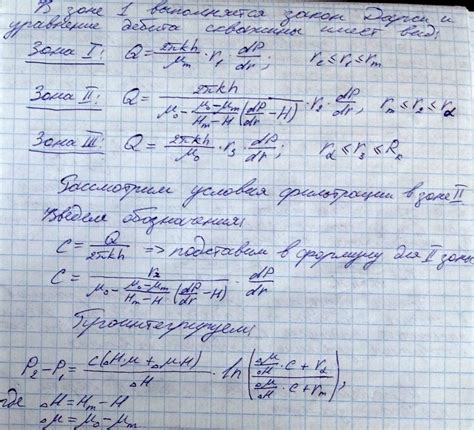 В зоне 1 выполняется закон Дарси и
уравнение дебита скважины имеет вид:
Зона I: Q = 2πkh/μₘ · r₁ dP/dr; r_c ≤ r₁ ≤ rₘ
Зона II: Q = 2πkh/(μ₀ - (μ₀-μₘ)/(Hₘ-H) (dP/dr - H)) · r₂ · dP/dr, rₘ ≤ r₂ ≤ r_α
Зона III: Q = 2πkh/μ₀ · r₃ · dP/dr; r_α ≤ r₃ ≤ R_к
Рассмотрим условия фильтрации в зоне II
Введем обозначения:
C = Q/2πkh => подставим в формулу для II зоны
C = r₂/(μ₀ - (μ₀-μₘ)/(Hₘ-H) (dP/dr - H)) · dP/dr
Проинтегрируем:
P₂-P₁ = C(ΔHμ + ΔμH)/ΔH · ln((Δμ/ΔH · C + r_α)/(Δμ/ΔH · C + rₘ)),
где ΔH = Hₘ - H
Δμ = μ₀ - μₘ